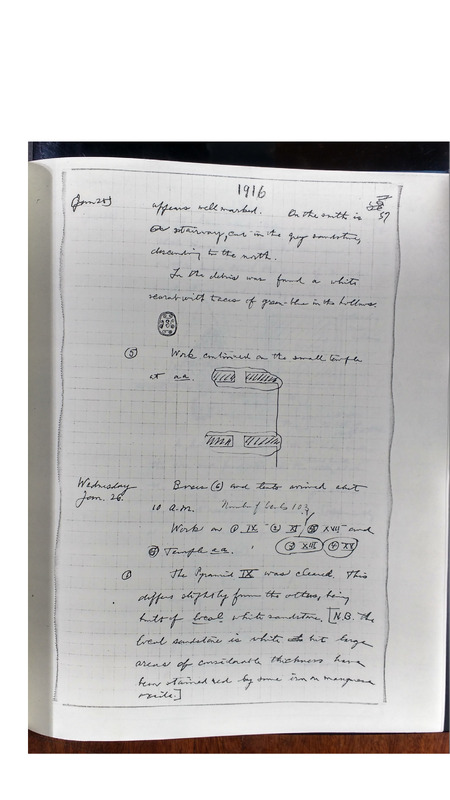 1916
Jan 25
57
appears well marked. On the south is
a stairway, cut in the grey sandstone,
descending to the north.
In the debris was found a white
scarab with traces of green-blue in the hollows.
⑤ Work continued on the small temple
at aa.
Wednesday
Jan. 26.
Boxes (6) and tents arrived about
10 a.m. Number of
Work on ① IX ② XI XVII and
③ XIII ④ XX
⑤ Temple aa.
① The Pyramid IX was cleared. This
differs slightly from the others, being
built of local white sandstone. [N.B. The
local sandstone is white but large
areas of considerable thickness have
been stained red by some iron or manganese
oxide.]